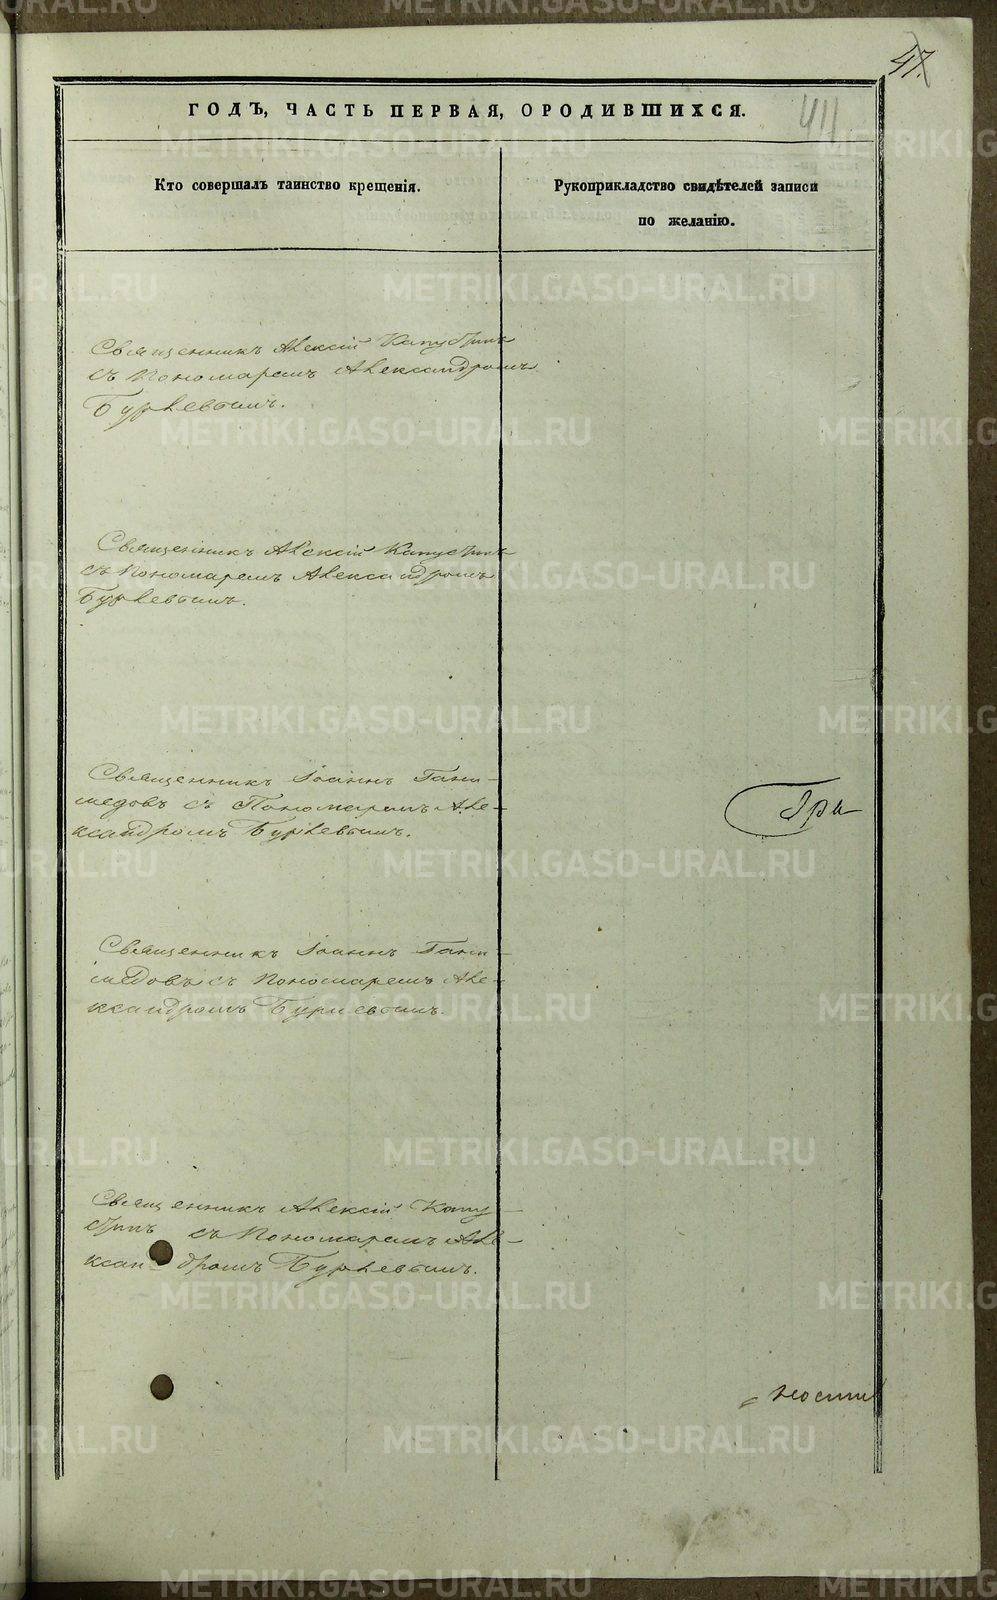 47.
411
ГОДЪ, ЧАСТЬ ПЕРВАЯ, О РОДИВШИХСЯ.
Кто совершалъ таинство крещенія.
Рукоприкладство свидѣтелей записи
по желанію.
Священникъ Алексій Капустинъ
съ Пономаремъ Александромъ
Бурлевымъ.
Священникъ Алексій Капустинъ
съ Пономаремъ Александромъ
Бурлевымъ.
Священникъ Іоаннъ Гани-
медовъ съ Пономаремъ Але-
ксандромъ Бурлевымъ.
Священникъ Іоаннъ Гани-
медовъ съ Пономаремъ Але-
ксандромъ Бурлевымъ.
Священникъ Алексій Капу-
стинъ съ Пономаремъ Але-
ксандромъ Бурлевымъ.
METRIKI.GASO-URAL.RU